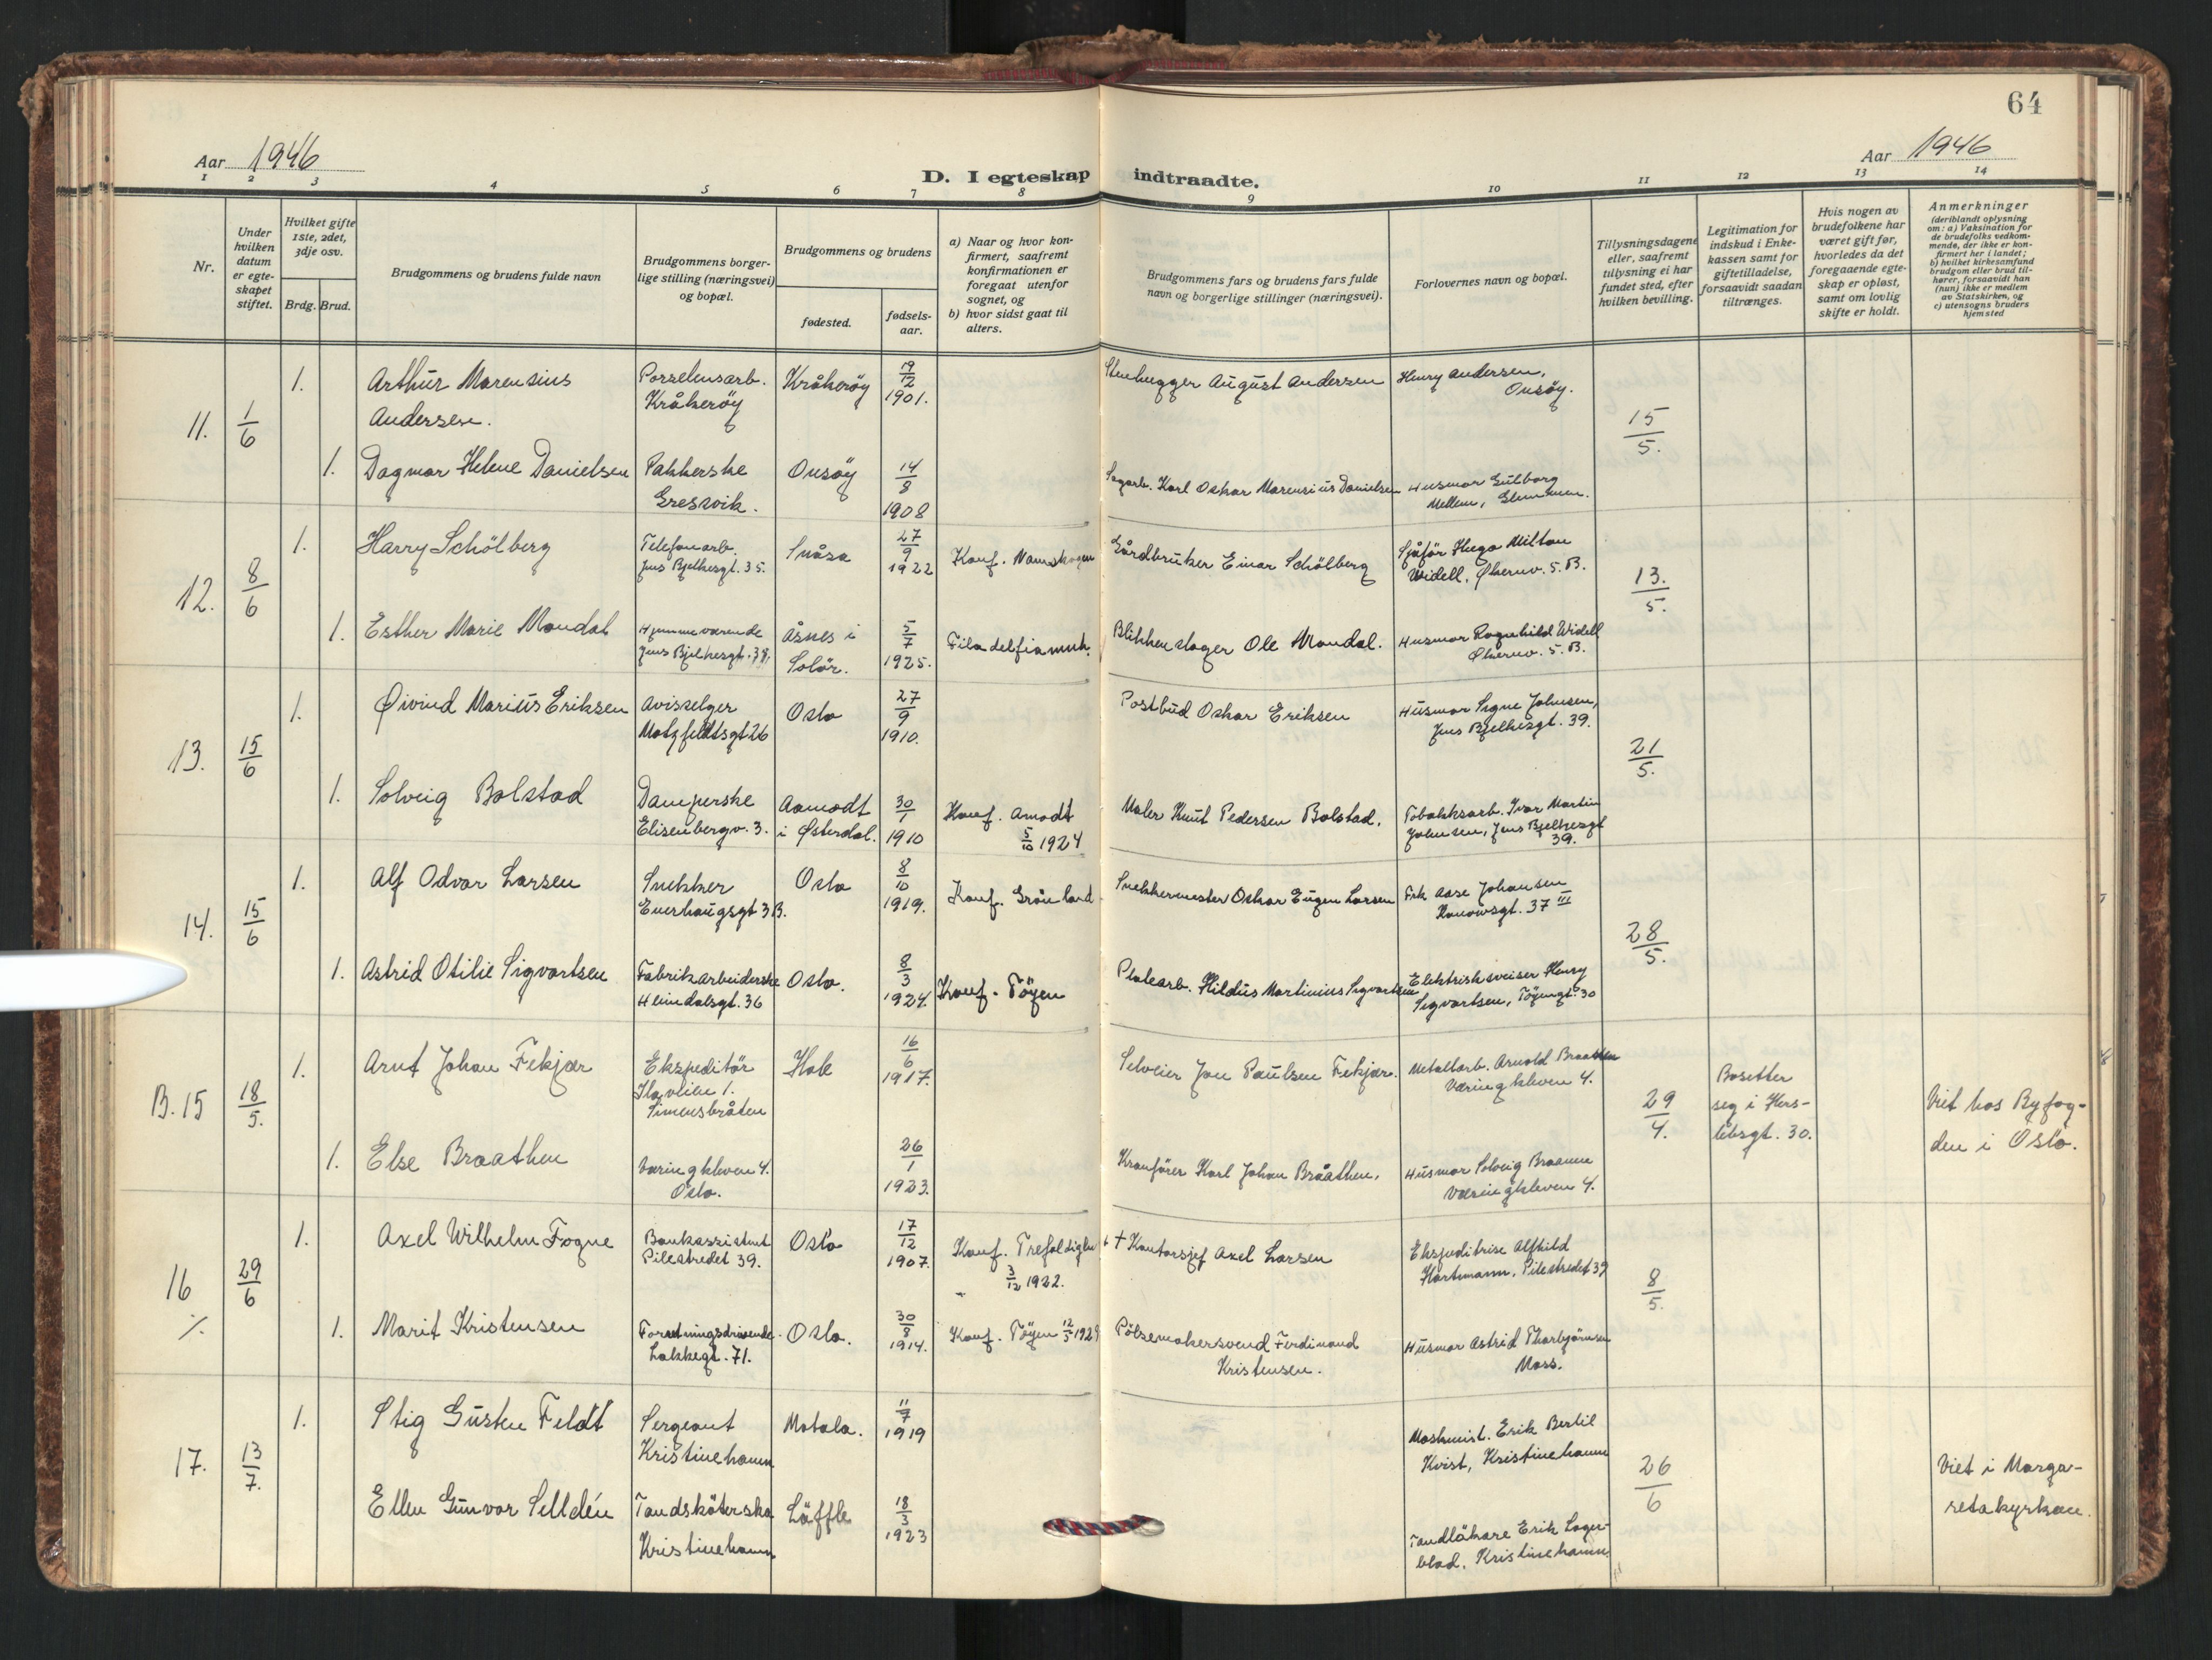 64
Aar 1946
D. I egteskap indtraadte.
Aar 1946
1 2 3 4 5 6 7 8 9 10 11 12 13 14
Nr.
Under hvilken datum er egteskapet stiftet.
Hvilket gifte 1ste, 2det, 3dje osv.
Brdg. Brud.
Brudgommens og brudens fulde navn
Brudgommens borgerlige stilling (næringsvei) og bopæl.
Brudgommens og brudens
fødested.
fødselsaar.
a) Naar og hvor konfirmert, saafremt konfirmationen er foregaat utenfor sognet, og
b) hvor sidst gaat til alters.
Brudgommens fars og brudens fars fulde navn og borgerlige stillinger (næringsvei).
Forlovernes navn og bopæl.
Tillysningsdagene eller, saafremt tillysning ei har fundet sted, efter hvilken bevilling.
Legitimation for indskud i Enkekassen samt for giftetilladelse, forsaavidt saadan tiltrænges.
Hvis nogen av brudefolkene har været gift før, hvorledes da det foregaaende egteskap er opløst, samt om lovlig skifte er holdt.
Anmerkninger
(deriblandt oplysning om: a) Vaksination for de brudefolks vedkommende, der ikke er konfirmert her i landet; b) hvilket kirkesamfund brudgom eller brud tilhører, forsaavidt han (hun) ikke er medlem av Statskirken, og c) utensogns bruders hjemsted
11. 1/6
1. Arthur Marensius Andersen. Porselensarb. Kråkerøy Kråkerøy 19/12 1901. Stenhugger August Andersen Henry Andersen, Onsøy. 15/5.
1. Dagmar Helene Danielsen Pakkerske Gresvik. Onsøy 14/8 1908 Sagarb. Karl Oskar Marensius Danielsen Husmor Gulborg Mellem, Glemmen.
12. 8/6
1. Harry Schölberg Telefonarb. Jens Bjelkesgt. 35. Snåsa 27/9 1922 Konf. Namskogan Gårdbruker Einar Schölberg Sjåför Hugo Milton Widell, Økernv. 5. B. 13./5.
1. Esther Marie Mandal Hjemmeværende Jens Bjelkesgt. 38. Åsnes i Solör. 5/7 1925. Filadelfiamnh. Blikkenslager Ole Mandal. Husmor Ragnhild Widell Økernv. 5. B.
13. 15/6
1. Øivind Marius Eriksen Avisselger Motzfeldtsgt 26 Oslo 27/9 1910. Postbud Oskar Eriksen Husmor Signe Johnsen, Jens Bjelkesgt. 39. 21/5.
1. Solveig Bolstad Damperske Elisenbergv. 3. Aamodt i Østerdal. 30/1 1910 Konf. Amodt 5/10 1924 Maler Knut Pedersen Bolstad. Tobakksarb. Ivar Martin Johnsen, Jens Bjelkesgt 39.
14. 15/6
1. Alf Odvar Larsen Snekker Enerhaugsgt 3 B. Oslo 8/10 1919. Konf. Grönland Snekkermester Oskar Eugen Larsen Frk Aase Johansen Kanowsgt. 37 III 28/5.
1. Astrid Otilie Sigvartsen Fabrikarbeiderske Heimdalsgt. 36 Oslo. 8/3 1924. Konf. Töyen Platearb. Hildus Martinius Sigvartsen Elektrisksveiser Henry Sigvartsen, Töyengt. 30
B. 15 18/5.
1. Arnt Johan Fekjær Ekspeditör Ilaveien 1. Simensbråten Hole 16/6 1917. Selveier Jon Paulsen Fekjær. Metallarb. Arnold Braathen Væringkleven 4. 29/4. Bosetter seg i Herslebsgt. 30. Viet hos Byfogden i Oslo.
1. Else Braathen Væringkleven 4. Oslo. 26/1 1923. Kranförer Karl Johan Braathen, Husmor Solveig Braanen Væringkleven 4.
16 ./. 29/6
1. Axel Wilhelm Fogne Bankassistent Pilestredet 39. Oslo 17/12 1907. Konf. Trefoldigh 3/12 1922. + Kontorsjef Axel Larsen Ekspeditrise Alfhild Hartmann, Pilestredet 39 8/5.
1. Marit Kristensen Forretningsdrivende Lakkegt. 71. Oslo. 30/8 1914. Konf. Töyen 12/5 1929 Pölsemakersvend Ferdinand Kristensen. Husmor Astrid Thorbjörnsen Moss.
17. 13/7.
1. Stig Gusten Feldt Sergeant Kristinehamn Motala. 11/7 1919 Maskinist. Erik Bertil Kvist, Kristinehamn 26/6 Viet i Margaretakyrkan.
Ellen Gunvor Selldén Tandsköterska Kristinehamn Säffle 18/3 1923 Tandläkare Erik Lagerblad. Kristinehamn.